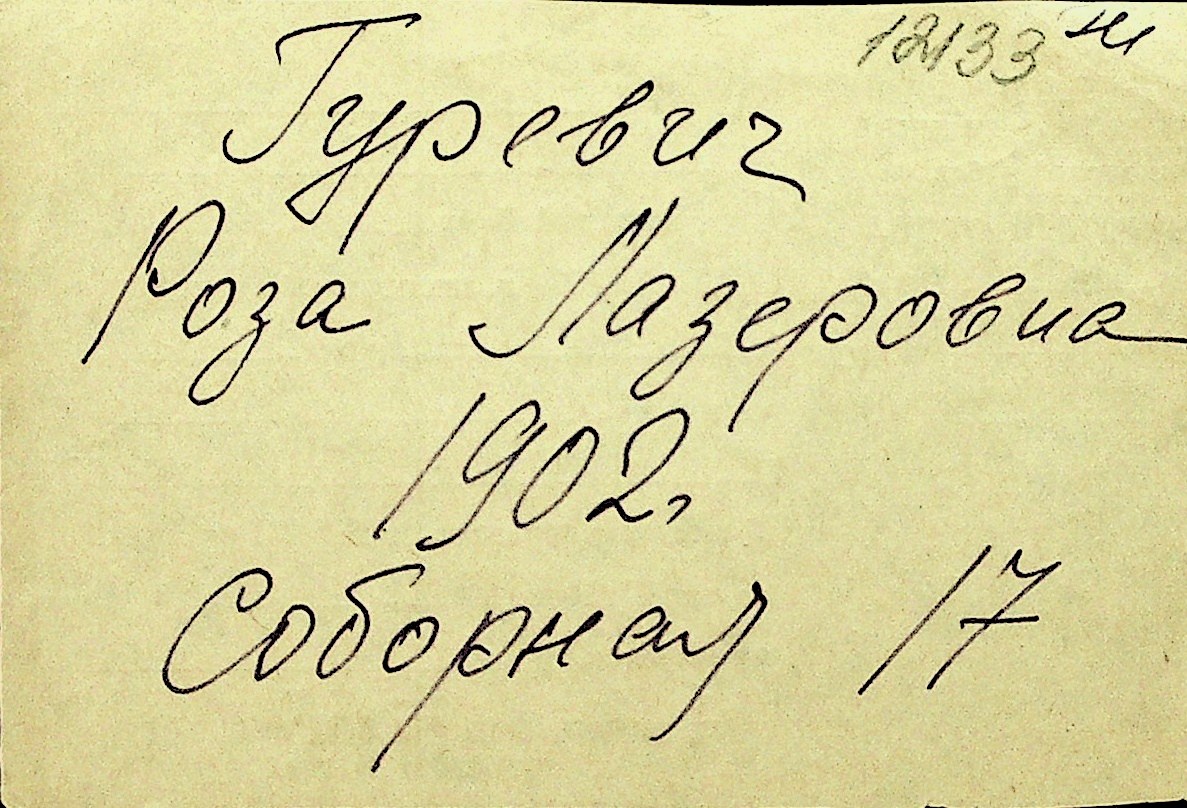 12133
Гуревич
Роза Лазеровна
1902,
Соборная 17